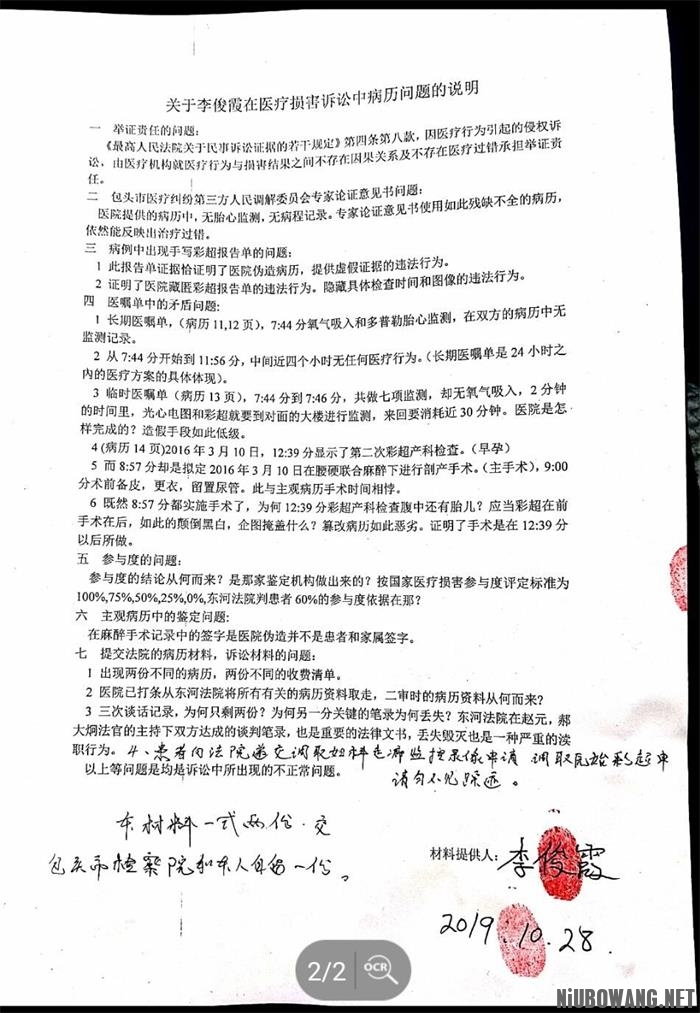 关于李俊霞在医疗损害诉讼中病历问题的说明
一 举证责任的问题：
《最高人民法院关于民事诉讼证据的若干规定》第四条第八款，因医疗行为引起的侵权诉
讼，由医疗机构就医疗行为与损害结果之间不存在因果关系及不存在医疗过错承担举证责
任。
二 包头市医疗纠纷第三方人民调解委员会专家论证意见书问题：
医院提供的病历中，无胎心监测，无病程记录。专家论证意见书使用如此残缺不全的病历，
依然能反映出治疗过错。
三 病例中出现手写彩超报告单的问题：
1 此报告单证据恰证明了医院伪造病历，提供虚假证据的违法行为。
2 证明了医院藏匿彩超报告单的违法行为。隐藏具体检查时间和图像的违法行为。
四 医嘱单中的矛盾问题：
1 长期医嘱单，（病历11,12页），7:44分氧气吸入和多普勒胎心监测，在双方的病历中无
监测记录。
2 从7:44分开始到11:56分，中间近四个小时无任何医疗行为。（长期医嘱单是24小时之
内的医疗方案的具体体现）。
3 临时医嘱单（病历13页），7:44分到7:46分，共做七项监测，却无氧气吸入，2分钟
的时间里，光心电图和彩超就要到对面的大楼进行监测，来回要消耗近30分钟。医院是怎
样完成的？造假手段如此低级。
4(病历14页)2016年3月10日，12:39分显示了第二次彩超产科检查。（早孕）
5 而8:57分却是拟定2016年3月10日在腰硬联合麻醉下进行剖产手术。（主手术），9:00
分术前备皮，更衣，留置尿管。此与主观病历手术时间相悖。
6 既然8:57分都实施手术了，为何12:39分彩超产科检查腹中还有胎儿？应当彩超在前
手术在后，如此的颠倒黑白，企图掩盖什么？篡改病历如此恶劣。证明了手术是在12:39分
以后所做。
五 参与度的问题：
参与度的结论从何而来？是那家鉴定机构做出来的？按国家医疗损害参与度评定标准为
100%,75%,50%,25%,0%,东河法院判患者60%的参与度依据在那？
六 主观病历中的鉴定问题:
在麻醉手术记录中的签字是医院伪造并不是患者和家属签字。
七 提交法院的病历材料，诉讼材料的问题：
1 出现两份不同的病历，两份不同的收费清单。
2 医院已打条从东河法院将所有有关的病历资料取走，二审时的病历资料从何而来？
3 三次谈话记录，为何只剩两份？为何另一分关键的笔录为何丢失？东河法院在赵元，郝
大炯法官的主持下双方达成的谈判笔录，也是重要的法律文书，丢失毁灭也是一种严重的渎
职行为。4、患者向法院递交调取妇科走廊监控录像申请 调取原始彩超申
请勻不见踪迹。
以上等问题是均是诉讼中所出现的不正常问题。
本材料一式两份.交
包头市检察院和本人自留一份。
材料提供人：李俊霞
2019.10.28.
2/2
OCR
NiUBOWANG.NET